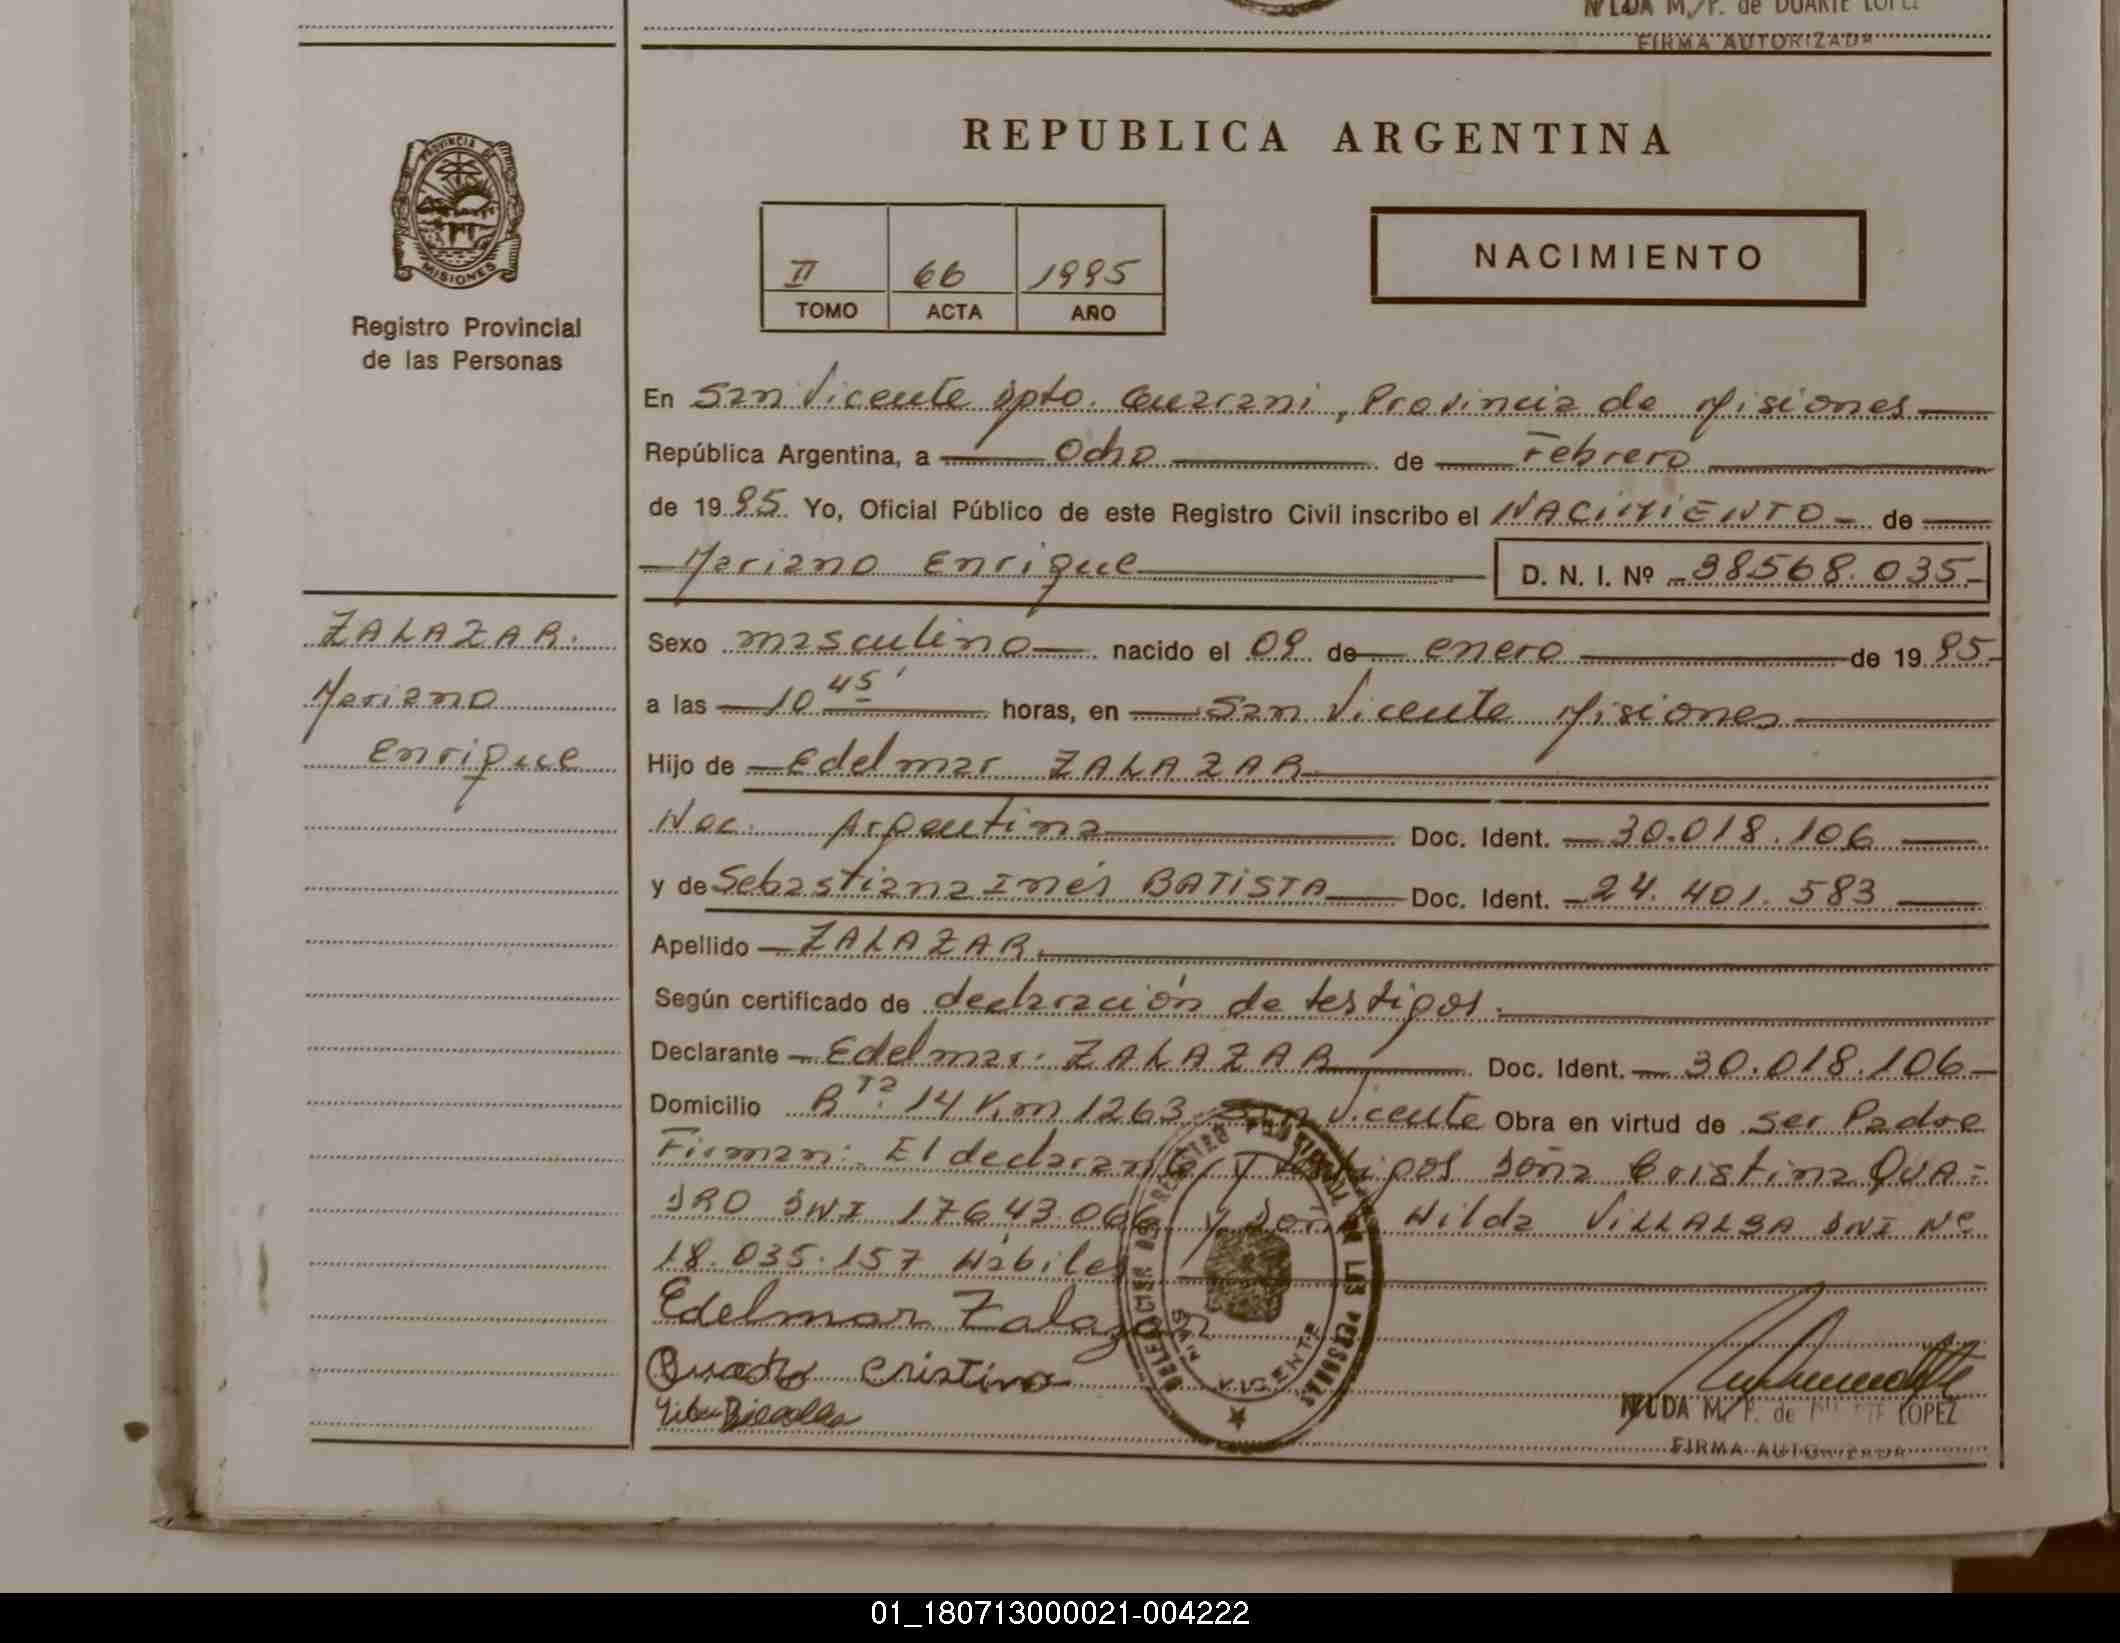 NILDA M. P. de DUARTE LOPEZ
FIRMA AUTORIZADA
PROVINCIA DE
MISIONES
Registro Provincial
de las Personas
REPUBLICA ARGENTINA
II 66 1995
TOMO ACTA AÑO
NACIMIENTO
En San Vicente Dpto. Guarani, Provincia de Misiones
República Argentina, a Ocho de Febrero
de 1995 Yo, Oficial Público de este Registro Civil inscribo el NACIMIENTO - de
Mariano Enrique D. N. I. Nº 38568.035-
ZALAZAR.
Mariano
Enrique
Sexo masculino nacido el 09 de enero de 1995
a las 10 45' horas, en San Vicente Misiones
Hijo de Edelmar ZALAZAR
Nac. Argentina Doc. Ident. 30.018.106
y de Sebastiana Inés BATISTA Doc. Ident. 24.401.583
Apellido ZALAZAR.
Según certificado de declaración de testigos.
Declarante Edelmar. ZALAZAR Doc. Ident. 30.018.106
Domicilio Rta. 14 Km 1263. San Vicente Obra en virtud de ser Padre
Firman: El declarante, y testigos Doña Cristina QUA=
DRO DNI 17643.066 y Doña Hilda VILLALBA DNI Nº
18.035.157 Hábiles
Edelmar Zalazar
Quadro Cristina
DELEGACION DEL REGISTRO PROVINCIAL DE LAS PERSONAS
VICENTE
NILDA M. P. de DUARTE LOPEZ
FIRMA AUTORIZADA
01_180713000021-004222